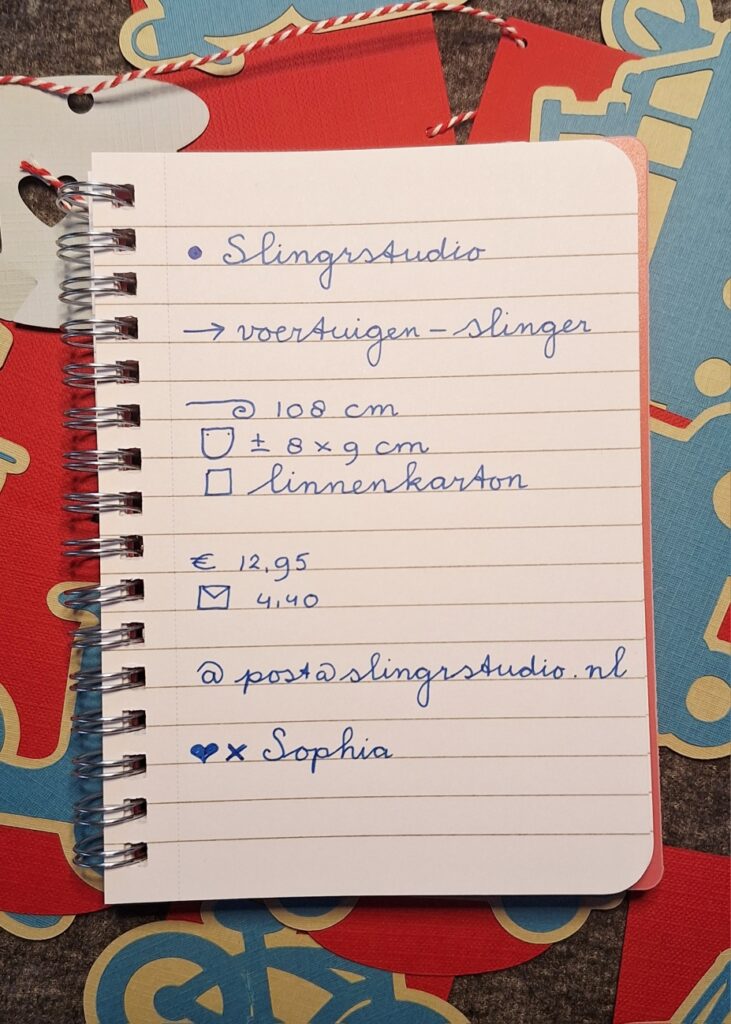 • Slingrstudio
→ voertuigen - slinger
108 cm
± 8 x 9 cm
linnenkarton
€ 12,95
4,40
@ post@slingrstudio.nl
♥x Sophia